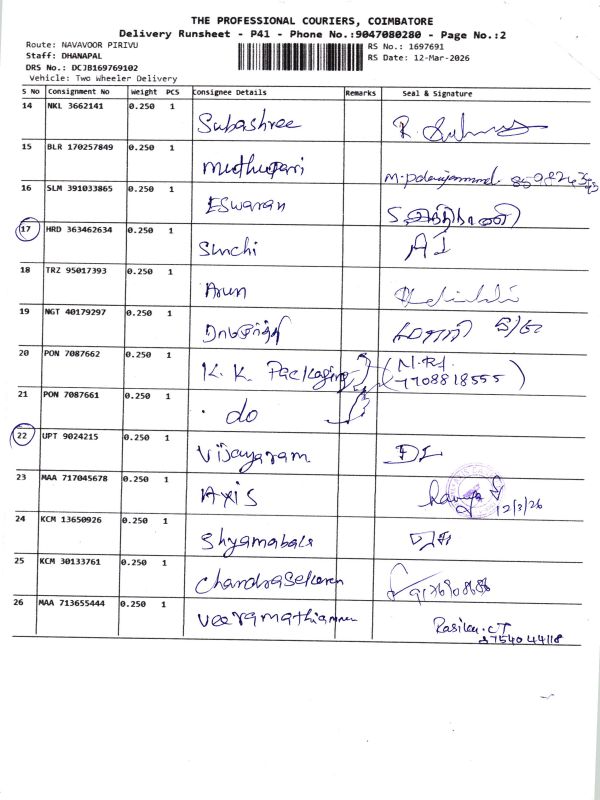 THE PROFESSIONAL COURIERS, COIMBATORE
Delivery Runsheet - P41 - Phone No.:9047080280 - Page No.:2
Route: NAVAVOOR PIRIVU RS No.: 1697691
Staff: DHANAPAL RS Date: 12-Mar-2026
DRS No.: DCJB169769102
Vehicle: Two Wheeler Delivery
S No Consignment No Weight PCS Consignee Details Remarks Seal & Signature
14 NKL 3662141 0.250 1 Subashree
15 BLR 170257849 0.250 1
16 SLM 391033865 0.250 1 ESwaran
17 HRD 363462634 0.250 1 AI
18 TRZ 95017393 0.250 1 Arun
19 NGT 40179297 0.250 1
20 PON 7087662 0.250 1 K. K. Packaging 7708818555
21 PON 7087661 0.250 1 do
22 UPT 9024215 0.250 1 Vijayaram
23 MAA 717045678 0.250 1 AXIS 12/3/26
24 KCM 13650926 0.250 1 Shyamabala
25 KCM 30133761 0.250 1 Chandrasekaren
26 MAA 713655444 0.250 1